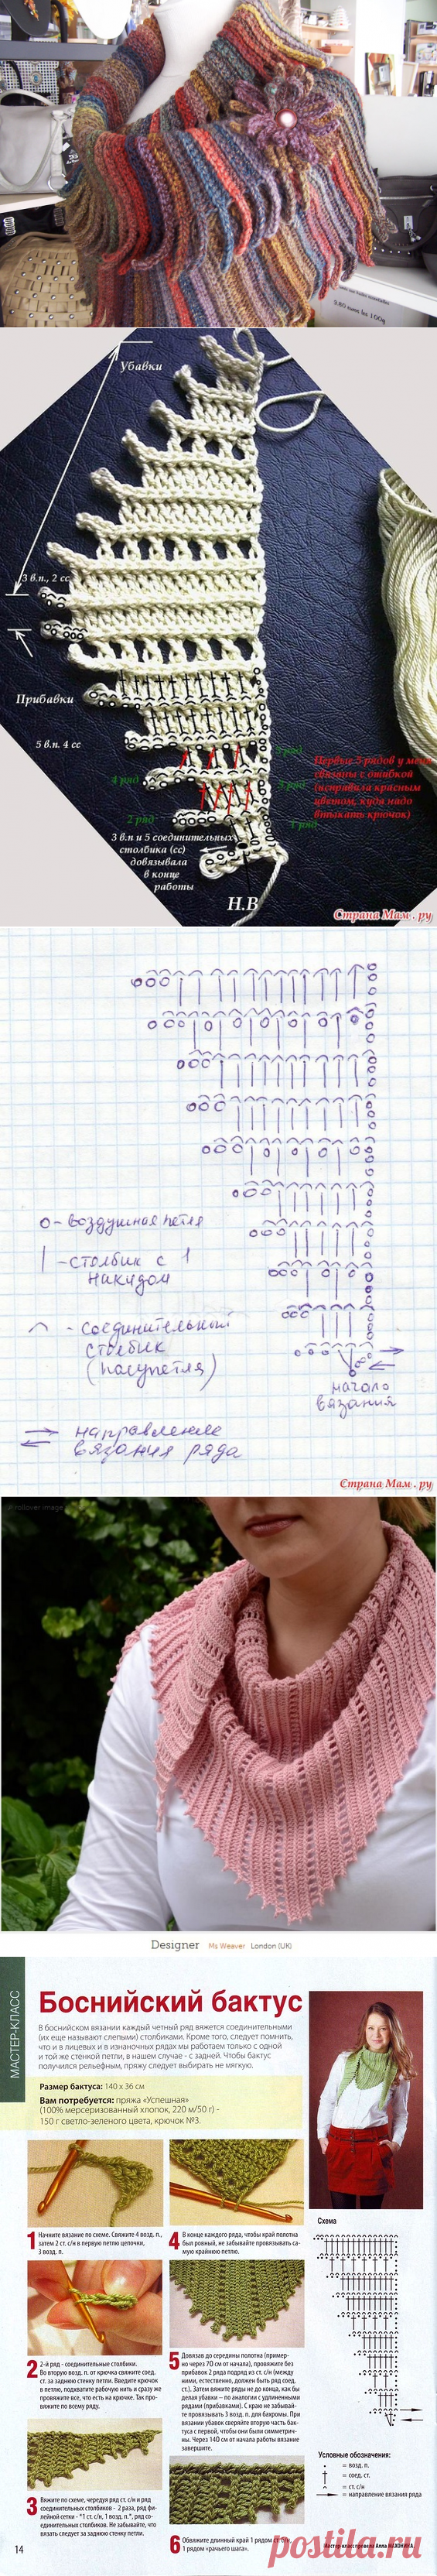 3.80 euros les 100g
Убавки
3 в.п., 2 сс
Прибавки
5 в.п. 4 сс
4 ряд
3 ряд
2 ряд
1 ряд
Первые 5 рядов у меня
связаны с ошибкой
(исправила красным
цветом, куда надо
втыкать крючок)
3 в.п и 5 соединительных
столбика (сс)
довязывала
в конце
работы
Н.В
Страна Мам . ру
о - воздушная петля
| - столбик с 1
накидом
⌒ - соединительный
столбик
(полупетля)
начало
вязания
направление
вязания ряда
Страна Мам . ру
rollover image
Designer Ms Weaver London (UK)
МАСТЕР-КЛАСС
Боснийский бактус
В боснийском вязании каждый четный ряд вяжется соединительными
(их еще называют слепыми) столбиками. Кроме того, следует помнить,
что и в лицевых и в изнаночных рядах мы работаем только с одной
и той же стенкой петли, в нашем случае - с задней. Чтобы бактус
получился рельефным, пряжу следует выбирать не мягкую.
Размер бактуса: 140 х 36 см
Вам потребуется: пряжа «Успешная»
(100% мерсеризованный хлопок, 220 м/50 г) -
150 г светло-зеленого цвета, крючок №3.
1 Начните вязание по схеме. Свяжите 4 возд. п.,
затем 2 ст. с/н в первую петлю цепочки,
3 возд. п.
2 2-й ряд - соединительные столбики.
Во вторую возд. п. от крючка свяжите соед.
ст. за заднюю стенку петли. Введите крючок
в петлю, подхватите рабочую нить и сразу же
провяжите все, что есть на крючке. Так про-
вяжите по всему ряду.
3 Вяжите по схеме, чередуя ряд ст. с/н и ряд
соединительных столбиков - 2 раза, ряд фи-
лейной сетки - *1 ст. с/н, 1 возд. п.*, ряд со-
единительных столбиков. Не забывайте, что
вязать следует за заднюю стенку петли.
4 В конце каждого ряда, чтобы край полотна
был ровным, не забывайте провязывать са-
мую крайнюю петлю.
5 Довязав до середины полотна (пример-
но через 70 см от начала), провяжите без
прибавок 2 ряда подряд из ст. с/н (между
ними, естественно, должен быть ряд соед.
ст.). Затем вяжите ряды не до конца, как бы
делая убавки – по аналогии с удлиненными
рядами (прибавками). С краю не забывай-
те провязывать 3 возд. п. для бахромы. При
вязании убавок сверяйте вторую часть бак-
туса с первой, чтобы они были симметрич-
ны. Через 140 см от начала работы вязание
завершите.
6 Обвяжите длинный край 1 рядом ст. б/н,
1 рядом «рачьего шага».
Схема
Условные обозначения:
= возд. п.
= соед. ст.
= ст. с/н
= направление вязания ряда
Мастер-класс провела Алла
14
postila.ru